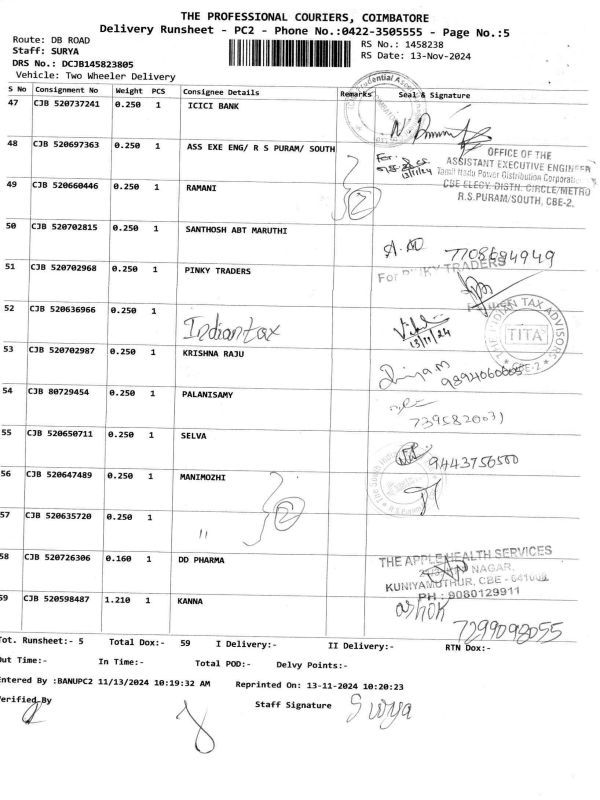 THE PROFESSIONAL COURIERS, COIMBATORE
Delivery Runsheet - PC2 - Phone No.:0422-3505555 - Page No.:5
Route: DB ROAD
Staff: SURYA
DRS No.: DCJB145823805
Vehicle: Two Wheeler Delivery
RS No.: 1458238
RS Date: 13-Nov-2024
S No Consignment No Weight PCS Consignee Details Remarks Seal & Signature
47 CJB 520737241 0.250 1 ICICI BANK
48 CJB 520697363 0.250 1 ASS EXE ENG/ R S PURAM/ SOUTH
For
13/11/24
OFFICE OF THE
ASSISTANT EXECUTIVE ENGINEER
Tamil Nadu Power Distribution Corporation
CBE ELECY. DISTN. CIRCLE/METRO
R.S.PURAM/SOUTH, CBE-2.
49 CJB 520660446 0.250 1 RAMANI
2
50 CJB 520702815 0.250 1 SANTHOSH ABT MARUTHI
51 CJB 520702968 0.250 1 PINKY TRADERS
For PINKY TRADERS
52 CJB 520636966 0.250 1 Indian tax
13/11/24
INDIAN TAX ADVISORS
TITA
CBE-2
53 CJB 520702987 0.250 1 KRISHNA RAJU
54 CJB 80729454 0.250 1 PALANISAMY
55 CJB 520650711 0.250 1 SELVA
9443756500
56 CJB 520647489 0.250 1 MANIMOZHI
2
57 CJB 520635720 0.250 1 "
58 CJB 520726306 0.160 1 DD PHARMA
THE APPLE HEALTH SERVICES
NAGAR,
KUNIYAMUTHUR, CBE - 641008
PH : 9080129911
59 CJB 520598487 1.210 1 KANNA
ashok
7299098055
Tot. Runsheet:- 5 Total Dox:- 59 I Delivery:- II Delivery:- RTN Dox:-
Out Time:- In Time:- Total POD:- Delvy Points:-
Entered By :BANUPC2 11/13/2024 10:19:32 AM Reprinted On: 13-11-2024 10:20:23
Verified By
Staff Signature Surya